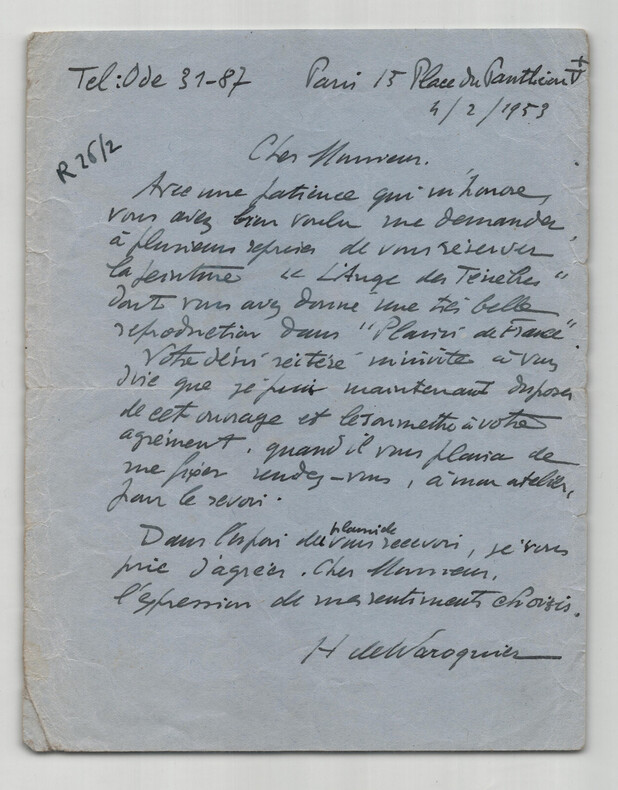 Tel: Ode 31-87 Paris 15 Place du Panthéon V
4/2/1953
R 26/2
Cher Monsieur.
Avec une patience qui m'honore,
vous avez bien voulu me demander,
à plusieurs reprises de vous réserver
la peinture "L'Ange des Ténèbres"
dont vous avez donné une très belle
reproduction dans "Plaisir de France".
Votre désir réitéré m'invite à vous
dire que je puis maintenant disposer
de cet ouvrage et le soumettre à votre
agrément, quand il vous plaira de
me fixer rendez-vous, à mon atelier,
pour le revoir.
Dans l'espoir du plaisir de vous recevoir, je vous
prie d'agréer. Cher Monsieur,
l'expression de mes sentiments choisis.
H de Waroquier